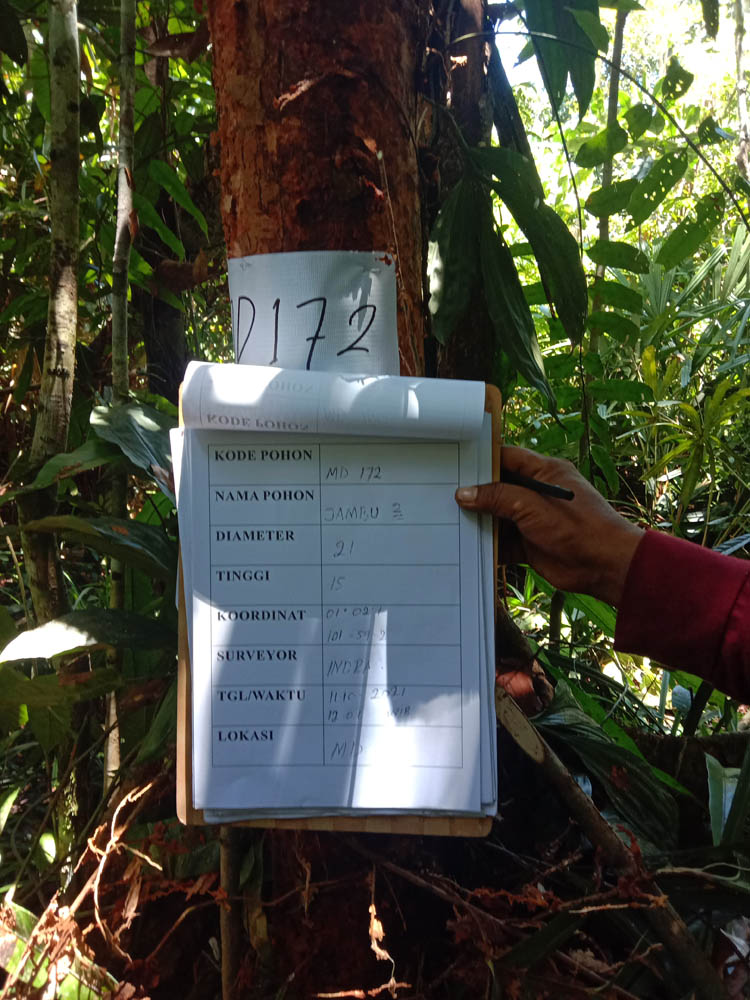 D172
KODE POHON
KODE POHON MD 172
NAMA POHON JAMBU 2
DIAMETER 21
TINGGI 15
KOORDINAT
SURVEYOR INDRA
TGL/WAKTU 11-10-2021
WIB
LOKASI MD